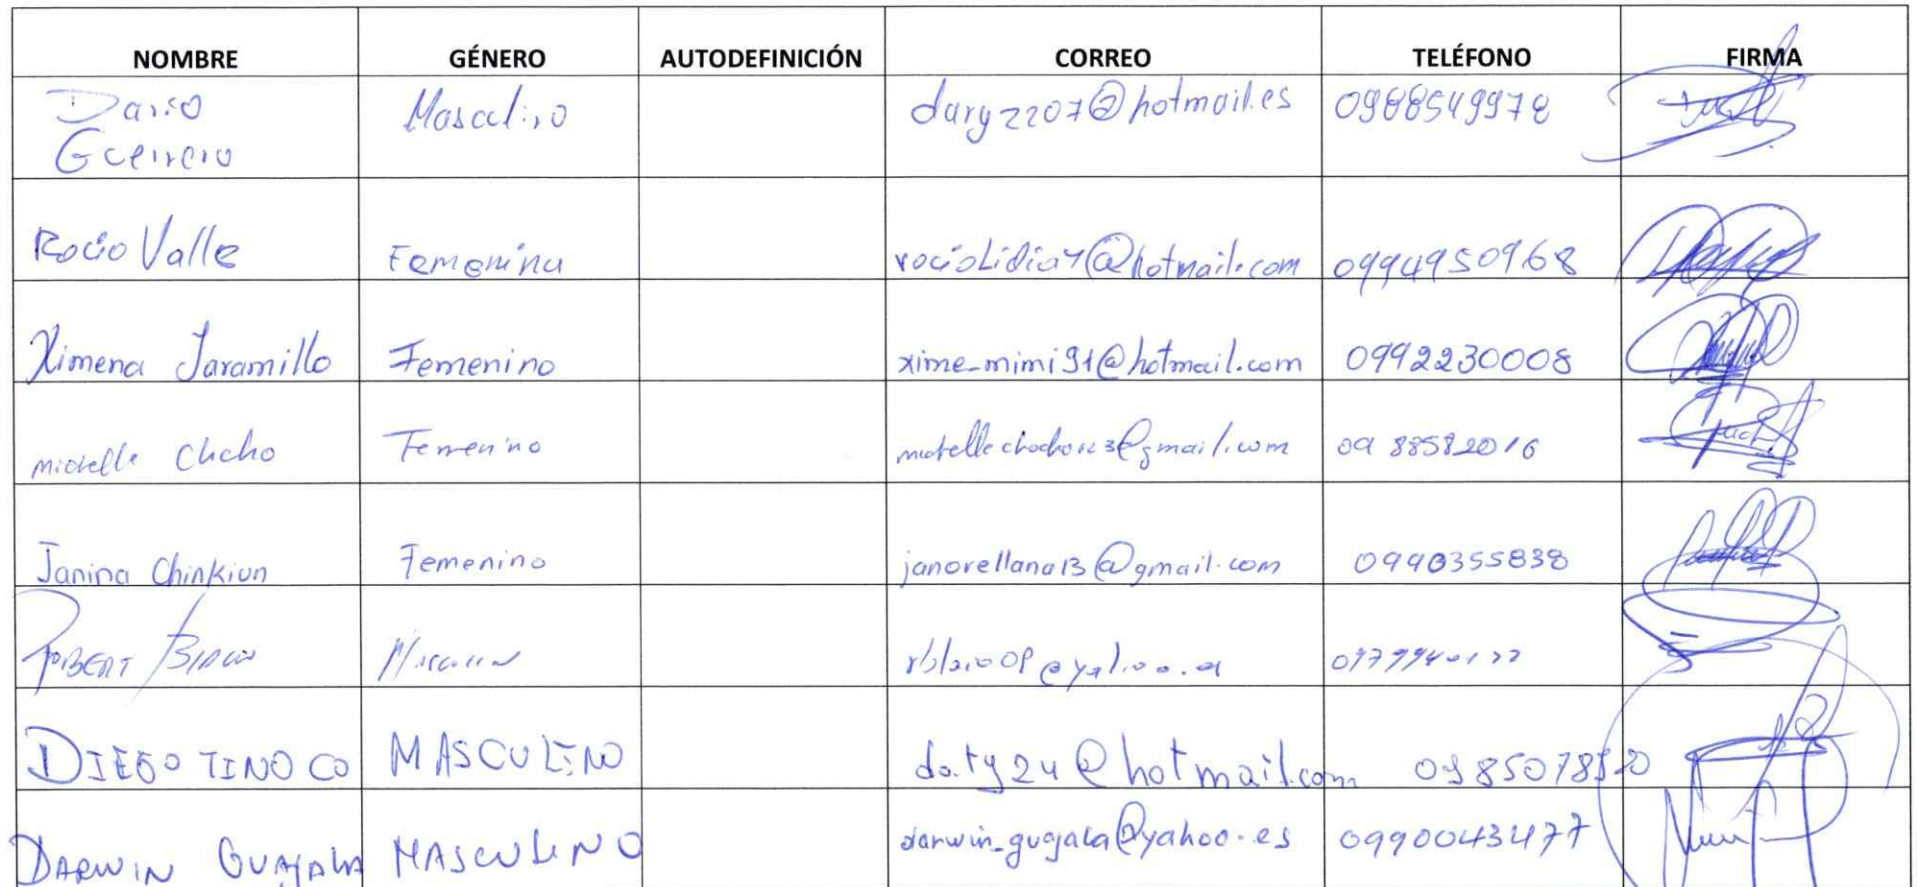 NOMBRE GÉNERO AUTODEFINICIÓN CORREO TELÉFONO FIRMA
Dario Masculino dary2207@hotmail.es 0988549978
Guerrero
Rocio Valle Femenina rociolidia7@hotmail.com 0994950968
Ximena Jaramillo Femenino xime_mimi91@hotmail.com 0992230008
Michelle Chcho Femenino 0988582016
Janina Chinkiun Femenino janorellana13@gmail.com 0990355838
ROBERT
DIEGO TINOCO MASCULINO daty24@hotmail.com 0985078520
DARWIN GUAJALA MASCULINO darwin_guajala@yahoo.es 0990043477